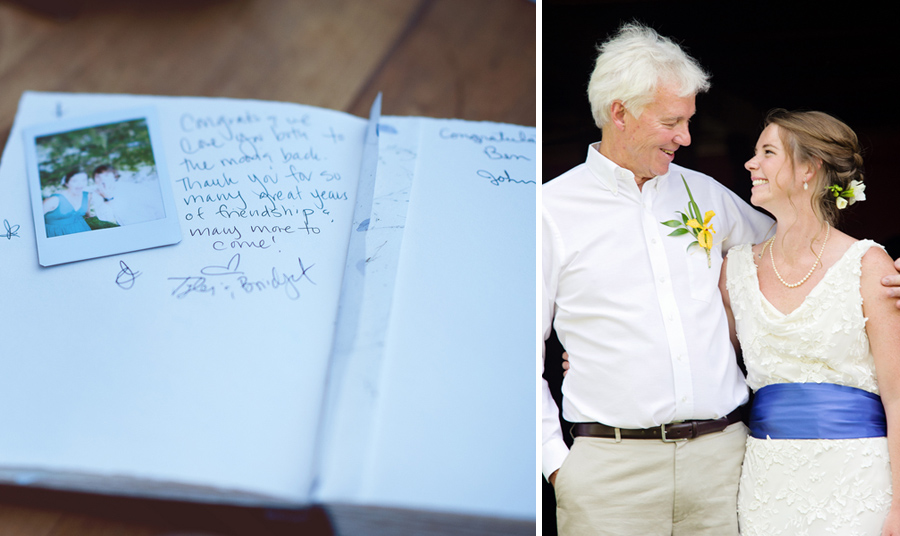 Congrats! we
love you both to
the moon & back
Thank you for so
many great years
of friendship &
many more to
come!
Tyler & Bridget
Congratulatio
Ben
John